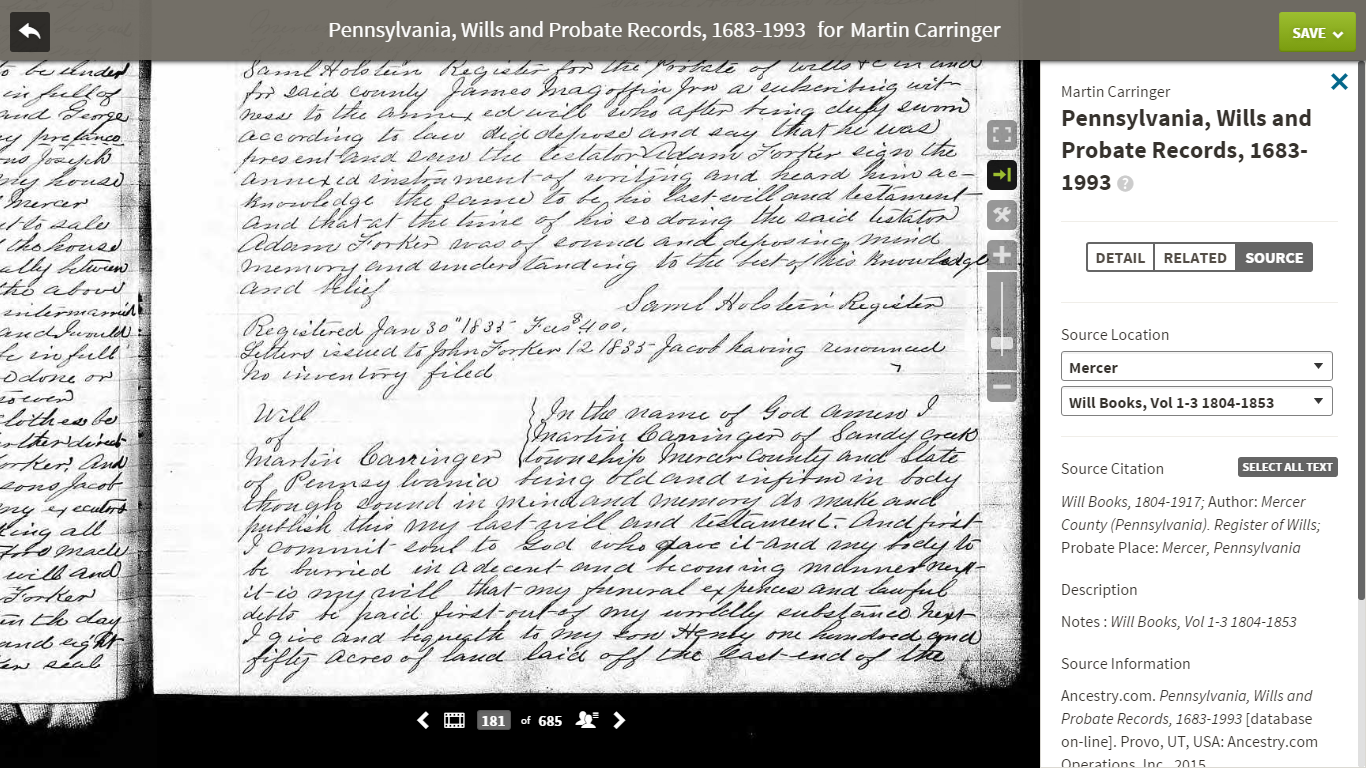 Pennsylvania, Wills and Probate Records, 1683-1993 for Martin Carringer
SAVE
to be under
in full of
and George
my prefance
Joseph
my house
Mercer
to sale
the house
ally between
the above
intermarried
and I would
be in full
done or
clothes be
further direct
Forker. And
sons Jacob
my executors
king all
made
will and
Forker
in the day
and eight
seal
Saml Holstein Register for the Probate of wills &c in and
for said county James Magoffin Jnr a subscribing wit-
ness to the annexed will who after being duly sworn
according to law did depose and say that he was
present and saw the testator Adam Forker sign the
annexed instrument of writing and heard him ac-
knowledge the same to be his last will and testament
and that at the time of his so doing the said testator
Adam Forker was of sound and deposing mind
memory and understanding to the best of his knowledge
and belief
Saml Holstein Register
Registered Jan 30" 1835 Fees $4.00.
Letters issued to John Forker 12 1835 Jacob having renounced
No inventory filed
Will
of
Martin Carringer
In the name of God amen I
Martin Carringer of Sandy creek
township Mercer County and State
of Pennsylvania being old and infirm in body
though sound in mind and memory do make and
publish this my last will and testament. And first
I commit soul to God who gave it and my body to
be burried in a decent and becoming manner next
it is my will that my funeral expences and lawful
debts be paid first out of my worldly substance Next
I give and bequeath to my son Henry one hundred and
fifty acres of land laid off the East end of the
181 of 685
Martin Carringer
Pennsylvania, Wills and
Probate Records, 1683-
1993 ?
DETAIL RELATED SOURCE
Source Location
Mercer
Will Books, Vol 1-3 1804-1853
Source Citation SELECT ALL TEXT
Will Books, 1804-1917; Author: Mercer
County (Pennsylvania). Register of Wills;
Probate Place: Mercer, Pennsylvania
Description
Notes : Will Books, Vol 1-3 1804-1853
Source Information
Ancestry.com. Pennsylvania, Wills and
Probate Records, 1683-1993 [database
on-line]. Provo, UT, USA: Ancestry.com
Operations, Inc., 2015.